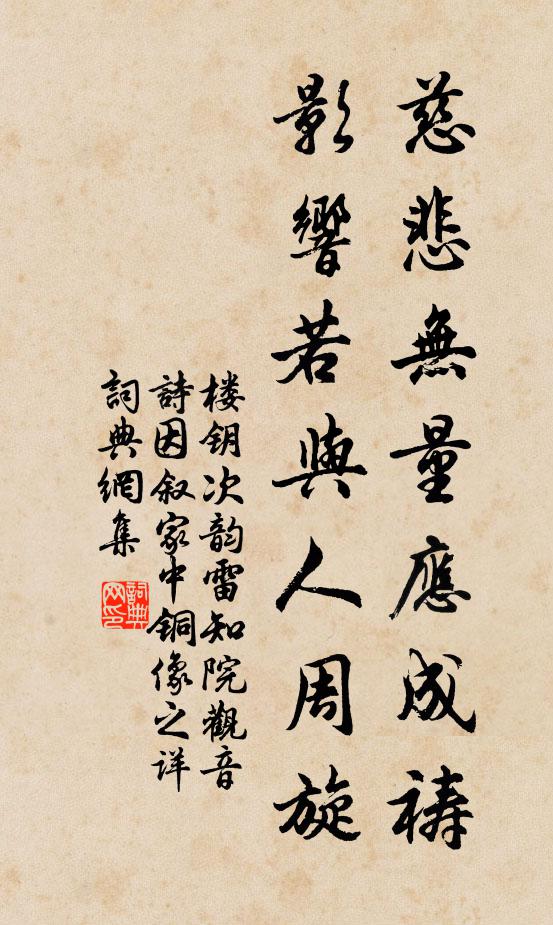 慈悲無量應成禱
影響若與人周旋
楼钥次韵雷知院觀音
詩因叙家中铜像之详
詞典網集
詞典网印